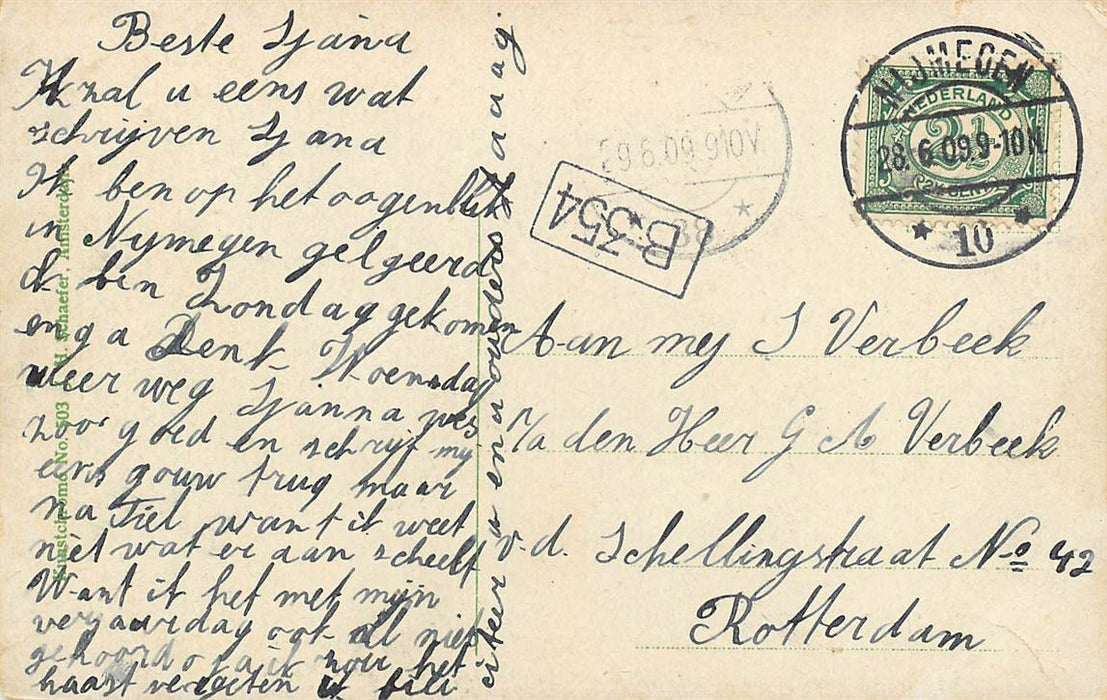 Beste Sjana
Ik zal u eens wat
schrijven Sjana
Ik ben op het oogenblik
in Nymegen gelgeerd
ik ben Zondag gekomen
en ga Denk Woensdag
weer weg Sjanna wes
zoo goed en schrijf my
eens gouw trug maar
na Tiel want ik weet
niet wat er aan scheelt
Want ik het met mijn
verjaardag ook al niet
gehoord o ja ik zou het
haast vergeten u
en a ouders Zraag.
Kunstchromo No. 503 Schaefer, Amsterdam
NIJMEGEN
28.6.09.9-10N.
10
NEDERLAND
2½
CENT
29.6.09.910V
B.354
Aan mej S Verbeek
p/a den Heer G A Verbeek
v.d. Schellingstraat No 42
Rotterdam